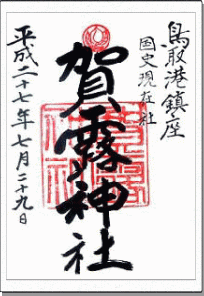 鳥取港鎮座
国史現在社
賀露神社
平成二十七年七月二十九日